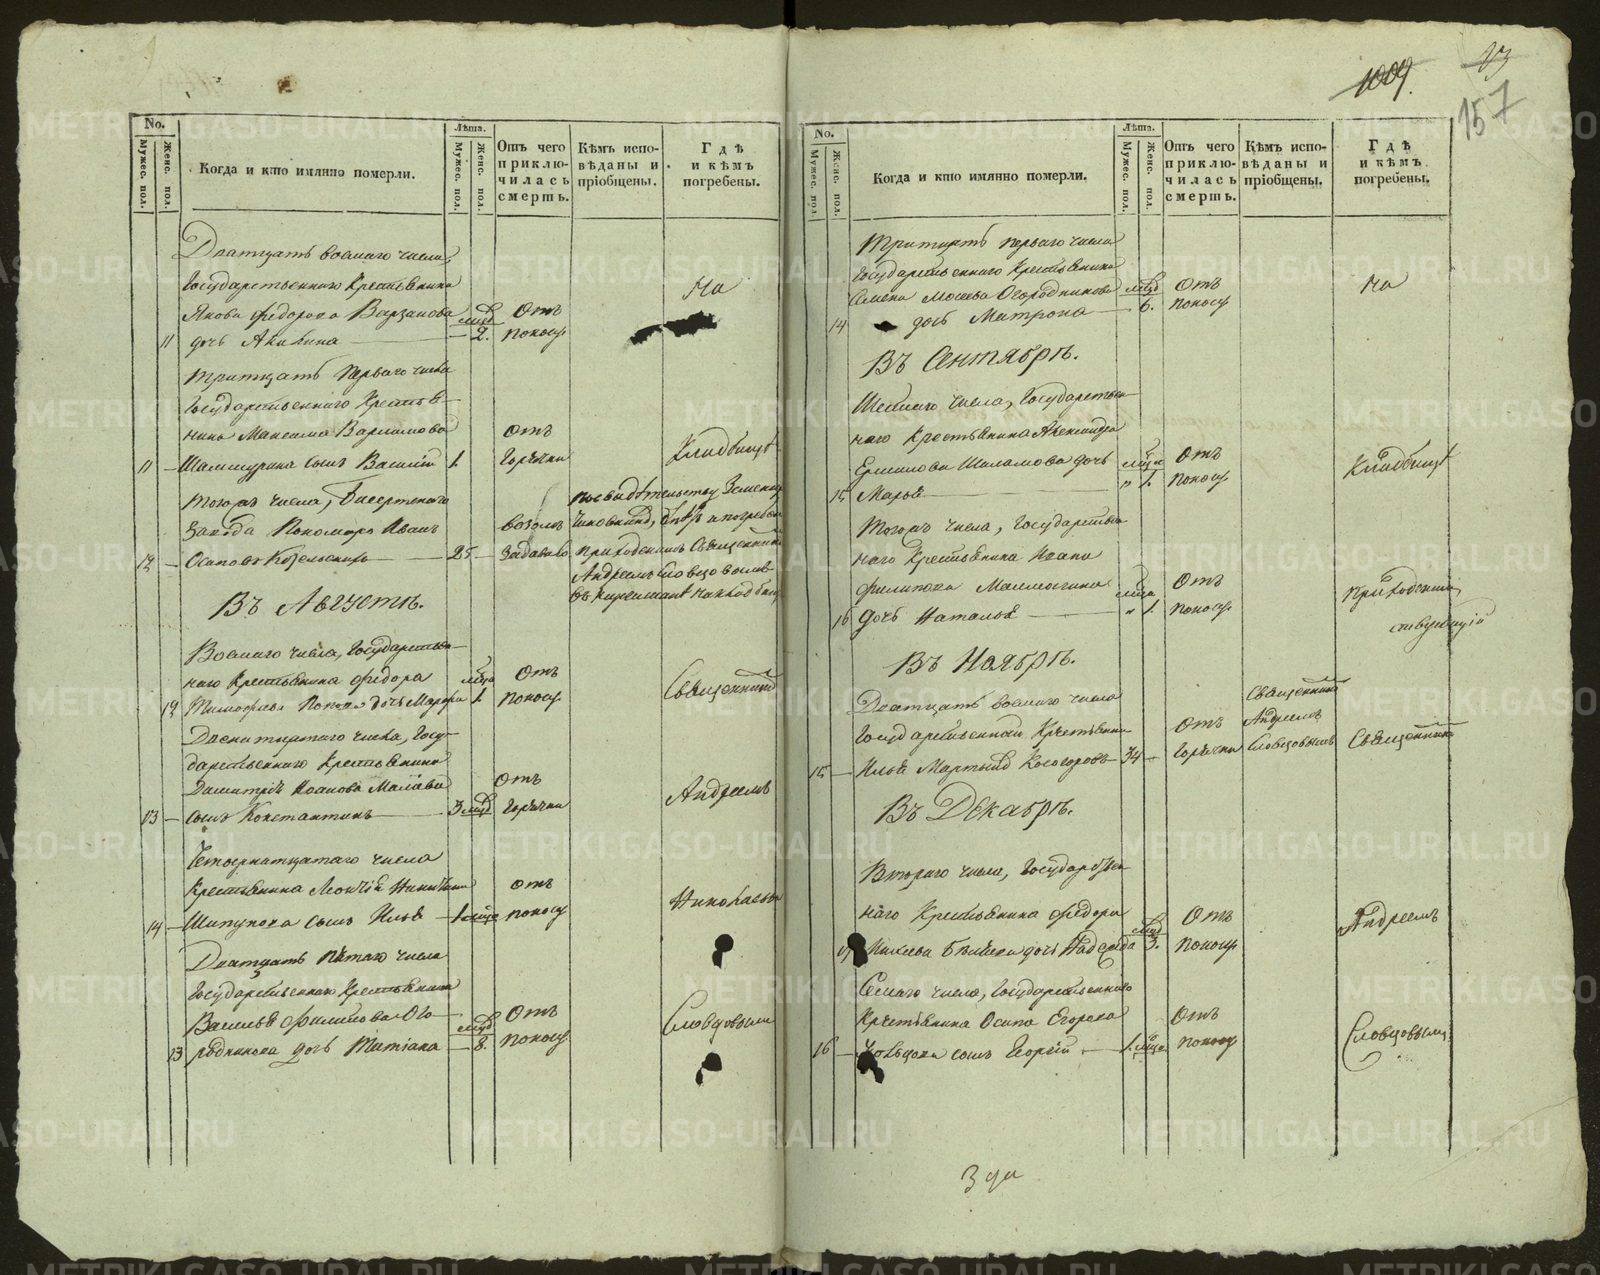 1009.
23
157
No.
Мужес. пол.
Женс. пол.
Когда и кто имянно померли.
Лѣта.
Мужес. пол.
Женс. пол.
Отъ чего приклю-
чилась смерть.
Кѣмъ испо-
вѣданы и
прiобщены.
Гдѣ
и кѣмъ
погребены.
Дватцать восмаго числа,
Государственнаго Крестьянина
Якова Федорова Варзакова
11 дочь Акилина — 2. Отъ поносу
На
Тритцать перваго числа
Государственнаго Крестья-
нина Максима Варламова
11 — Шамшурина сынъ Василiй 1. Отъ Горячки
Кладбищѣ
Тогожъ числа, Бисертскаго
Завода Пономарь Иванъ
12 — Осиповъ — 25 —
Въ Августѣ.
Восмаго числа, Государствен-
наго Крестьянина Федора
12 Тимофеева дочь Марфа 1. Отъ поносу
Священникомъ
Девятнатцатаго числа, Госу-
дарственнаго Крестьянина
Димитрiя Иванова
13 — сынъ Константинъ — 3 Отъ Горячки
Андреемъ
Четырнатцатаго числа
Крестьянина
14 — Шипунова сынъ Илья — 1 Отъ поносу
Николаевымъ
Дватцать пятаго числа
Государственнаго Крестьянина
Василья Филипова Ого-
13 родникова дочь Татiана — 8. Отъ поносу
Словцовымъ
No.
Мужес. пол.
Женс. пол.
Когда и кто имянно померли.
Лѣта.
Мужес. пол.
Женс. пол.
Отъ чего
приклю-
чилась
смерть.
Кѣмъ испо-
вѣданы и
прiобщены.
Гдѣ
и кѣмъ
погребены.
Тритцать перваго числа
Государственнаго Крестьянина
Семена Мосеева Огородникова
14 дочь Матрона — 6. Отъ поносу
На
Въ Сентябрѣ.
Шестаго числа, Государствен-
наго Крестьянина Александра
Ермилова Шаламова дочь
15 Марья — 1. Отъ поносу
Кладбищѣ
Тогожъ числа, Государствен-
наго Крестьянина Ивана
Филипова
16 дочь Наталья — 1. Отъ поносу
Приходскiй
Въ Ноябрѣ.
Дватцать восмаго числа
Государственный Крестьянинъ
15 — Илья Мартыновъ Косогоровъ — 34 — Отъ Горячки
Священникомъ
Андреемъ
Словцовымъ
Священникъ
Въ Декабрѣ.
Втораго числа, Государствен-
наго Крестьянина Федора
17 дочь Надежда 3. Отъ поносу
Андреемъ
Семаго числа, Государственнаго
Крестьянина Осипа Егорова
16 — сынъ Георгiй — 1. Отъ поносу
Словцовымъ
METRIKI.GASO-URAL.RU